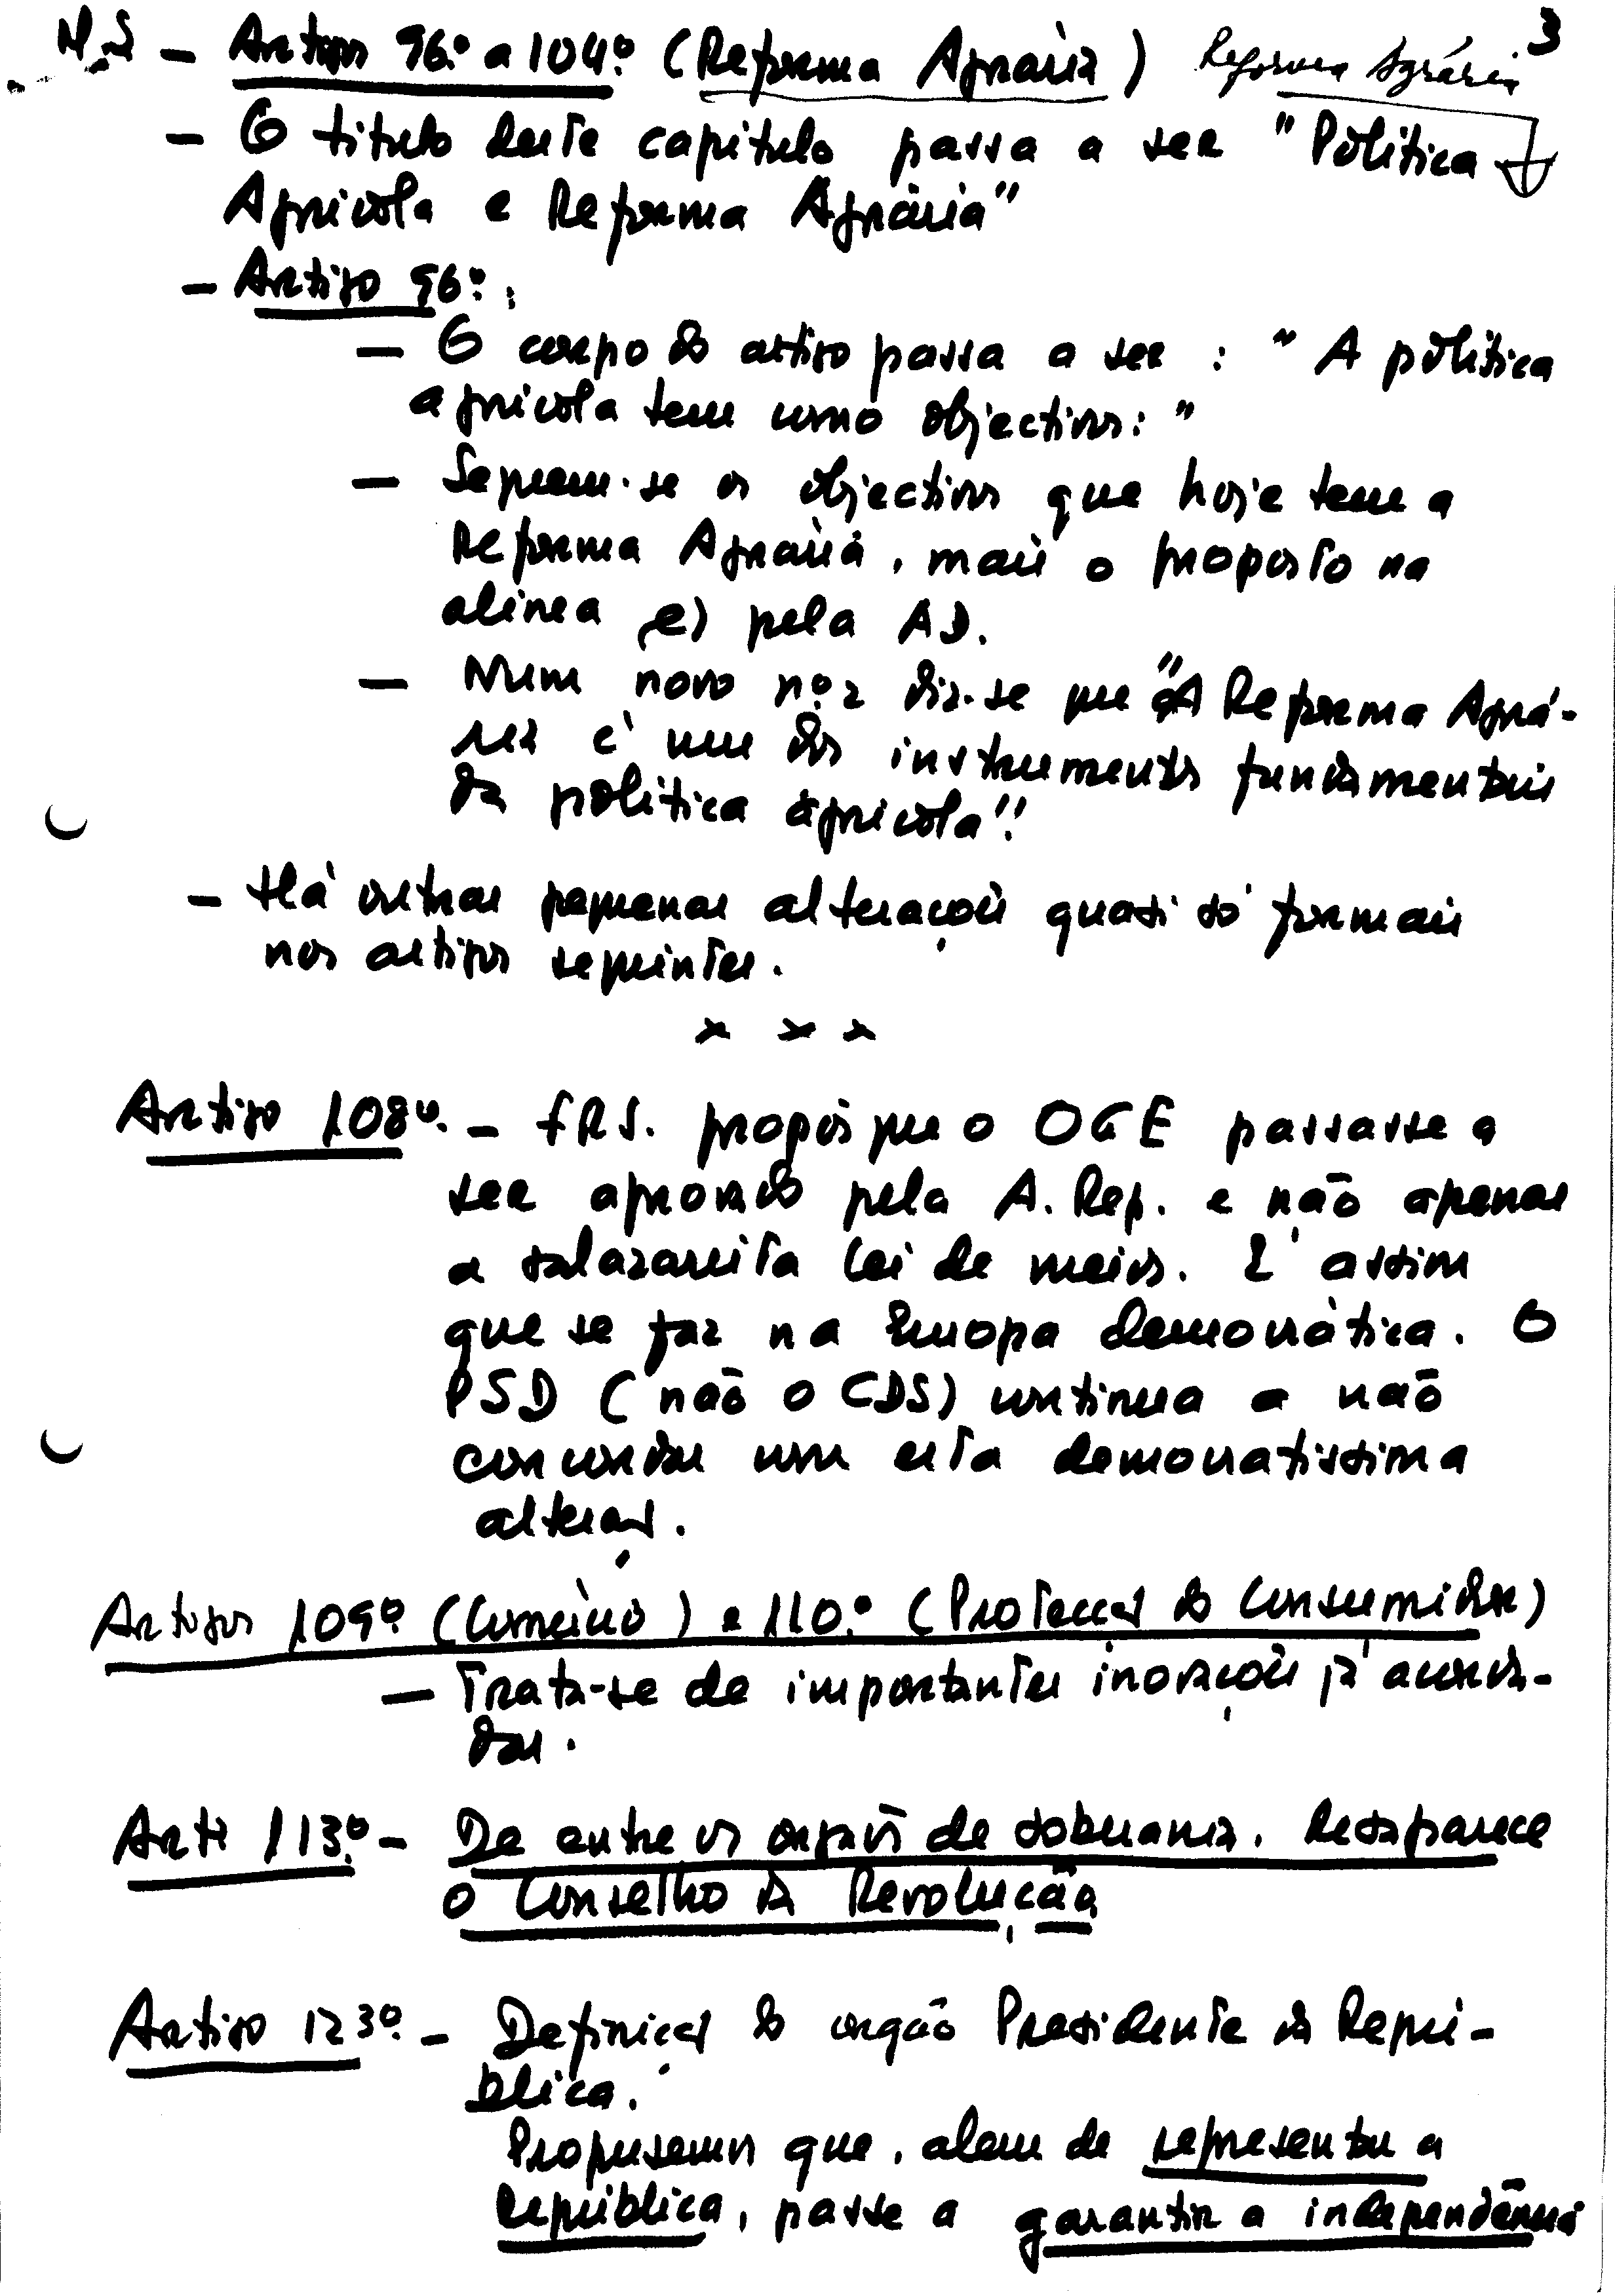 3
— Artigos 96.º a 104.º (Reforma Agrária) Reforma Agrária
— O titulo deste capitulo passa a ser "Politica
Agricola e Reforma Agrária"
— Artigo 96.º:
— O corpo do artigo passa a ser : "A politica
agricola tem como objectivos:"
— Seguem-se os objectivos que hoje tem a
Reforma Agrária, mais o proposto na
alinea e) pela AD.
— Num novo n.º 2 diz-se que "A Reforma Agrá-
ria é um dos instrumentos fundamentais
da politica agricola".
— Há outras pequenas alterações quasi só formais
nos artigos seguintes.
x x x
Artigo 108º. — FRS. propôs que o OGE passasse a
ser aprovado pela A. Rep. e não apenas
a salazarista lei de meios. É assim
que se faz na Europa democrática. O
PSD (não o CDS) continua a não
concordar com esta democratissima
alteração.
Artigos 109º. (Comércio) e 110.º (Protecção do Consumidor)
— Trata-se de importantes inovações já acorda-
das.
Arti 113.º — De entre os orgãos de soberania. Desaparece
o Conselho da Revolução
Artigo 123º. — Definição do orgão Presidente da Repú-
blica.
Propusemos que, alem de representar a
República, passe a garantir a independência